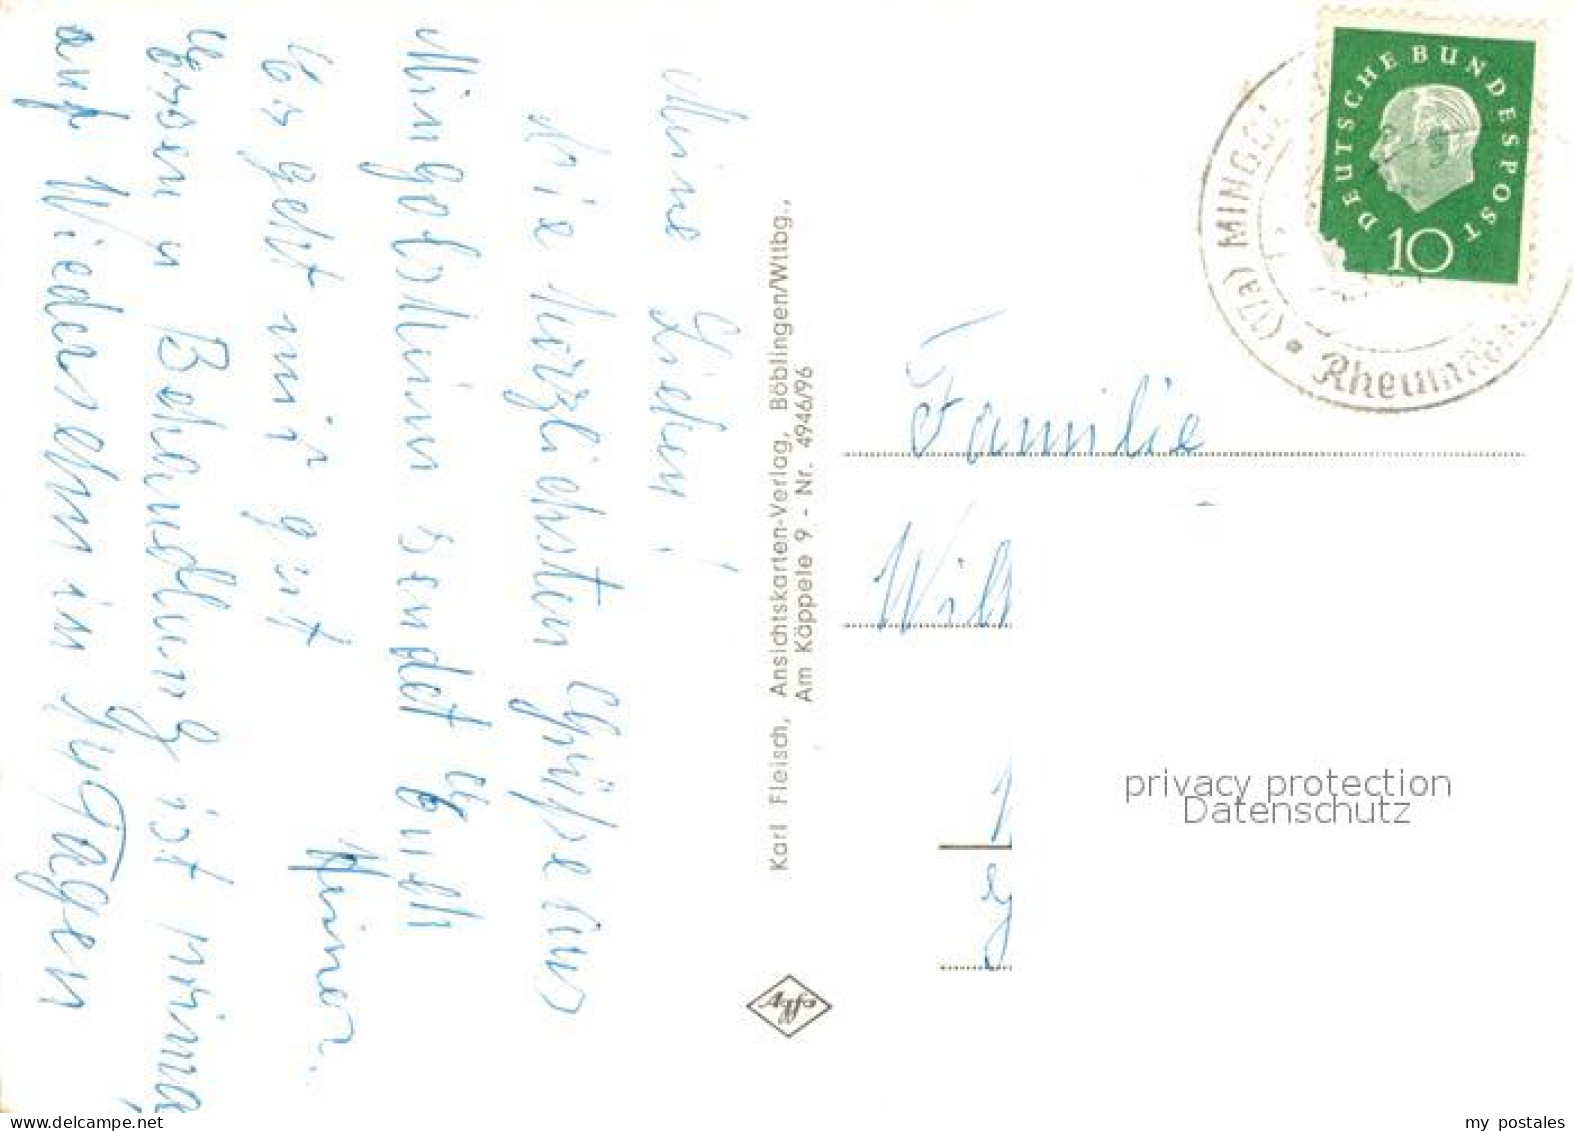 Meine Lieben!
die herzlichsten Grüße aus
Mingolsheim sendet Euch
Heiner.
Es geht mir gut
Essen u Behandlung ist prima,
auf Wiedersehn in Tagen
Karl Fleisch, Ansichtskarten-Verlag, Böblingen/Wttbg.,
Am Käppele 9 - Nr. 4946/96
Agfa
DEUTSCHE BUNDESPOST
10
(17a) MINGO
Familie
Will
privacy protection
Datenschutz
www.delcampe.net
my_postales